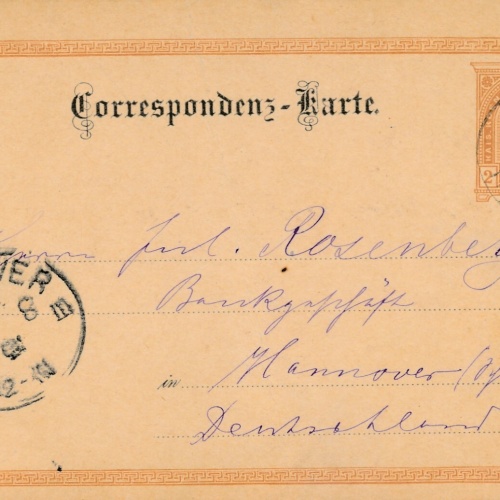 Correspondenz-Karte.
2
Herrn Jul. Rosenberg
Bankgeschäft
in Hannover
Deutschland
VER
8
12-1